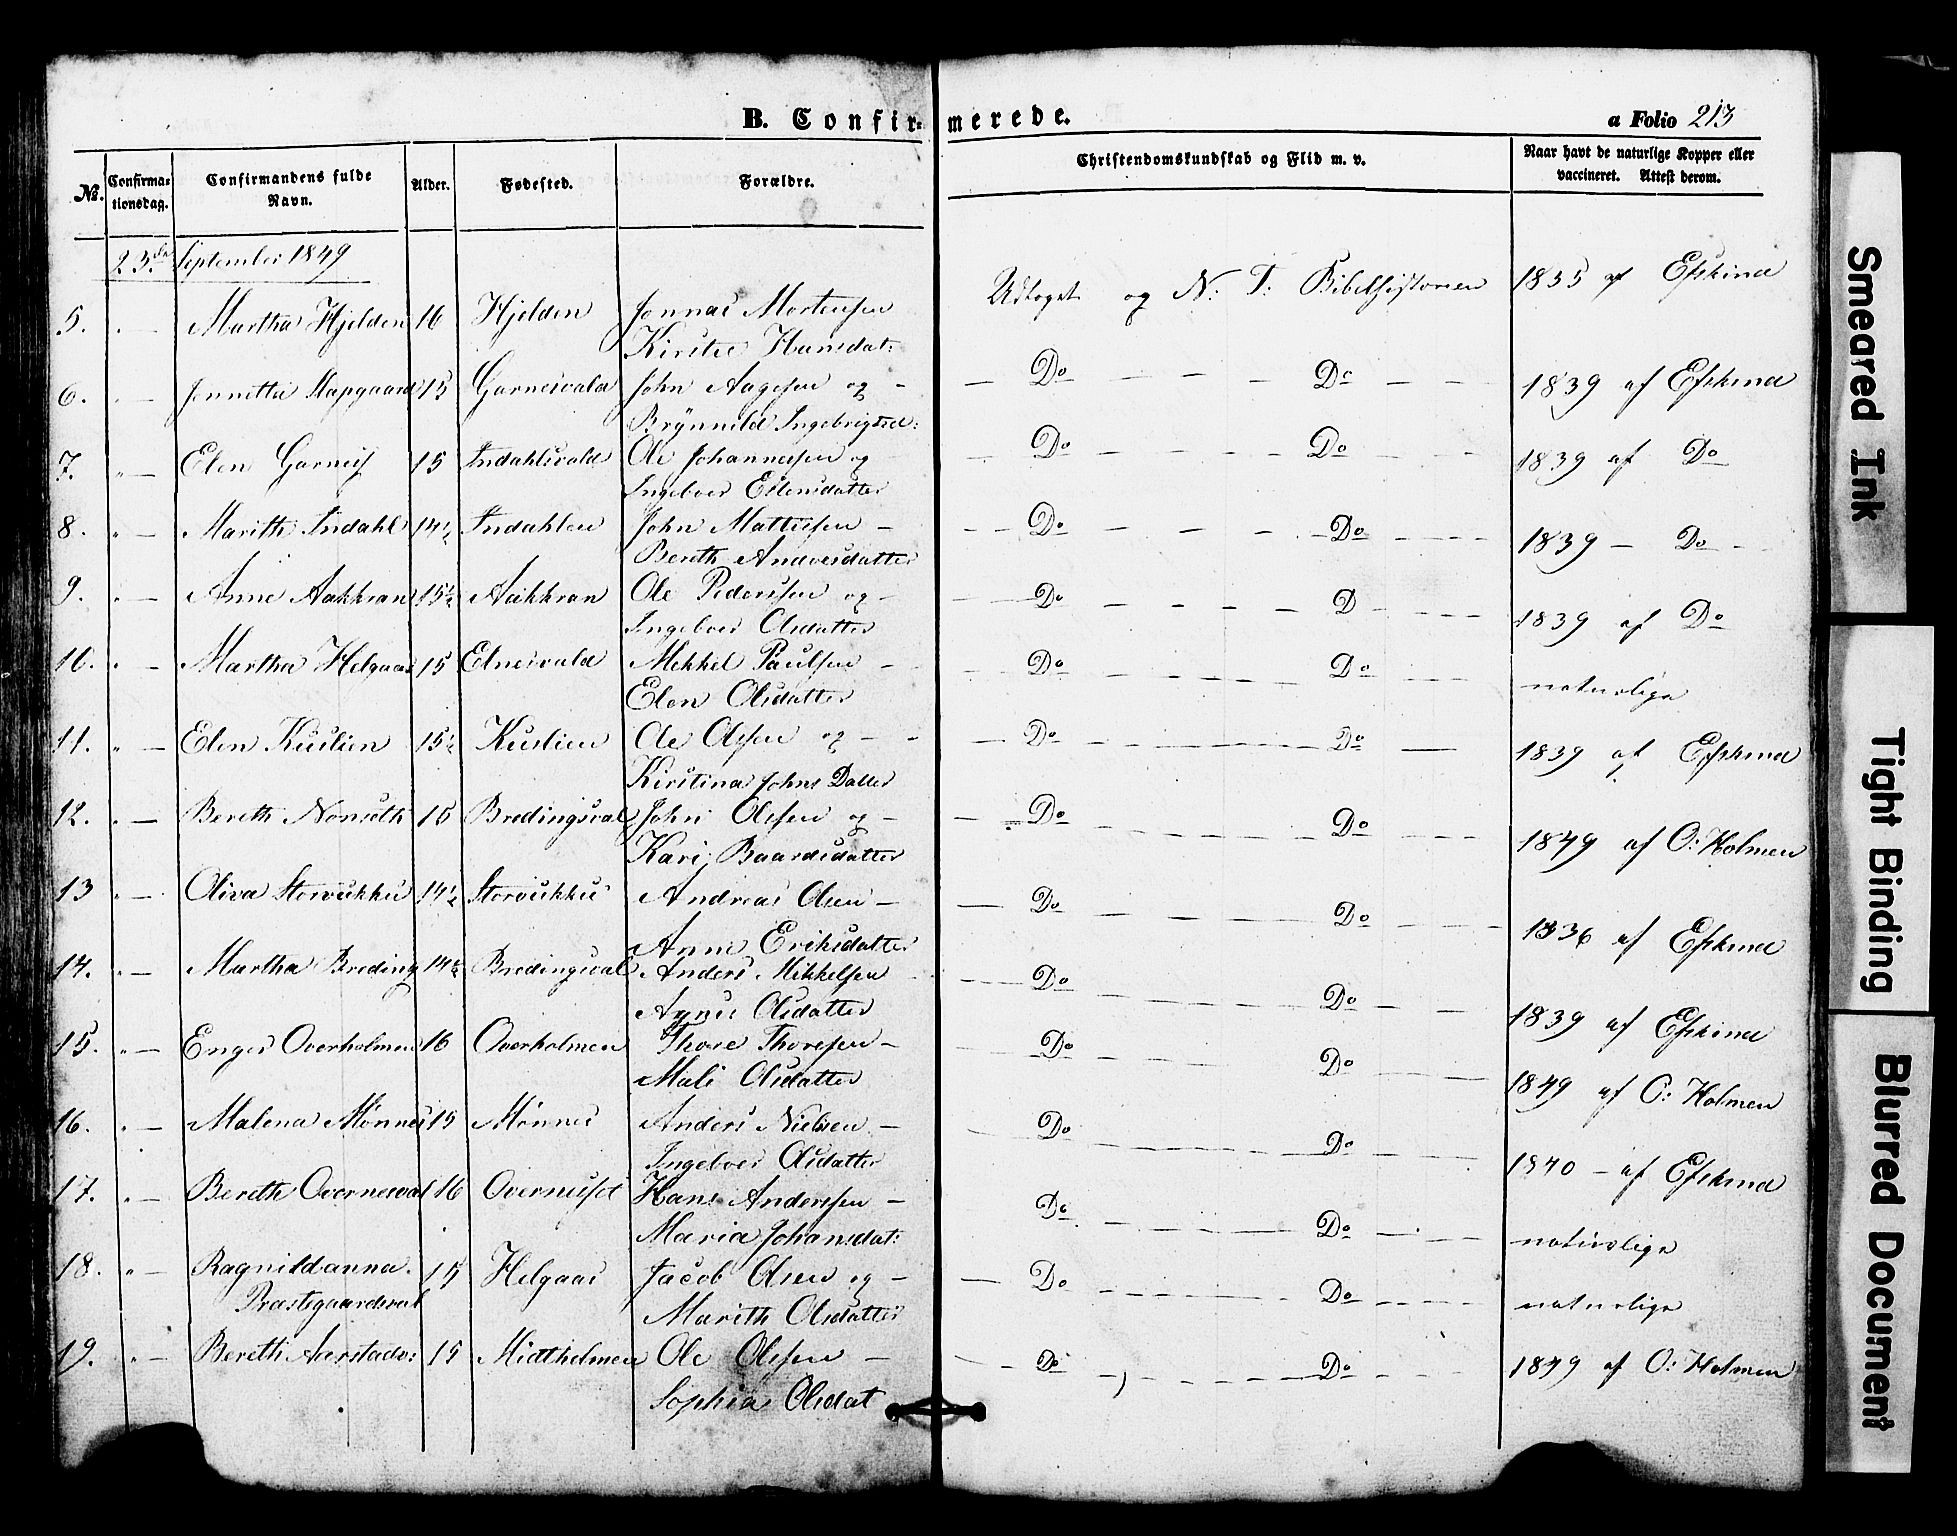 B. Confirmerede.
a Folio 213
№.
Confirmationsdag.
Confirmandens fulde Navn.
Alder.
Fødested.
Forældre.
Christendomskundskab og Flid m. v.
Naar havt de naturlige Kopper eller vaccineret. Attest derom.
23de September 1849
5. " — Martha Hjelden 16 Hjelden Jonnas Mortensen Udtoget og N: T: Bibelhistorien 1835 af Efskind
Kirstie Hansdat:
6. " — Jennetta 15 Garnesvald John Aagesen og — Do — Do — 1839 af Efskind
Brynnild Ingebrigtsd:
7. " — Elen Garnes 15 Indahlsvald Ole Johannesen og — Do — Do — 1839 af Do
Ingeboer Ellensdatter
8. " — Marith Indahl 14½ Indahlen John Mattisen — Do — Do — 1839 — Do
Bereth Andersdatter
9. " — Anne Aakkran 15½ Aakkran Ole Pedersen og — Do — D — 1839 af Do
Ingeboer Olsdatter
10. " — Martha Helgaas 15 Elnesvald Mikkel Paulsen — Do — Do — naturlige
Elen Olsdatter
11. " — Elen Kuslien 15½ Kuslien Ole Olsen og — Do — Do — 1839 af Efskind
Kirstina Johns Datter
12. " — Bereth 15 Bredingsval John Olsen og — Do — Do — 1849 af O: Holmen
Kari Baardsdatter
13 " — Oliva Storvukku 14½ Storvukku Andreas Olsen — Do — Do — 1836 af Efskind
Anne Eriksdatter
14. " — Martha Breding 14½ Bredingsval Anders Mikkelsen — Do — Do — 1839 af Efskind
Agnes Olsdatter
15. " — Enger Overholmen 16 Overholmen Thore Thoresen — Do — Do — 1849 af O: Holmen
Mali Olsdatter
16. " — Malena Mønnes 15 Mønnes Anders Nielsen — Do — Do — 1840 — af Efskind
Ingeboer Olsdatter
17. " — Bereth Overnesval 16 Hans Andersen — Do — Do — naturlige
Maria Johansdat:
18. " — Ragnildanna 15 Helgaas Jacob Olsen og — Do — Do — naturlige
Præstegaardsval Marith Olsdatter
19. " — Bereth Aarstadv: 15 Midtholmen Ole Olsen — Do — Do — 1849 af O: Holmen
Sophia Olsdat
Smeared Ink
Tight Binding
Blurred Document